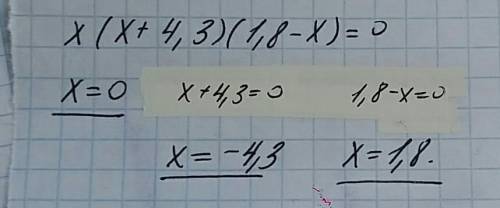 x(x+4,3)(1,8-x)=0
x=0 x+4,3=0 1,8-x=0
x=-4,3 x=1,8.